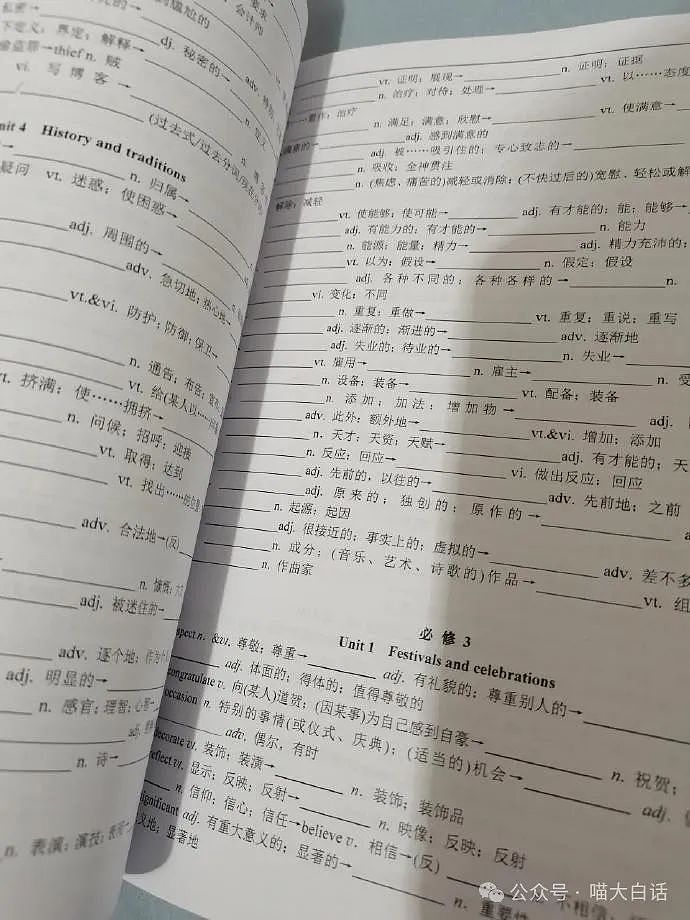 私密→
dj. 秘密的→
会计师
下定义；界定；解释→
偷盗罪→thief n. 贼
vi. 写博客→
(过去式/过去分词/现在分词)
Unit 4 History and traditions
n. 归属→
疑问 vt. 迷惑；使困惑→
adj. 周围的→
adv. 急切地；热心地→
vt.&vi. 防护；防御；保卫→
n. 通告；布告；
vt. 挤满；使……拥挤→
vt. 给(某人以……
n. 问候；招呼；迎接
vt. 取得；达到
vt. 找出……的位置
adv. 合法地→(反)
n. 慷慨；大方
adj. 被迷住的→
adv. 逐个地；
adj. 明显的→
n. 感官；理智；心智→
n. 诗→
n. 表演；演技；
n. 证明；证据
vt. 证明；展现→
vt. 以……态度
n. 治疗；对待；处理→
……看作；治疗
vt. 使满意→
n. 满足；满意；欣慰→
满意的→
adj. 感到满意的
adj. 被……吸引住的；专心致志的→
n. 吸收；全神贯注
n. (焦虑、痛苦的)减轻或消除；(不快过后的)宽慰、轻松或解
解除；减轻
vt. 使能够；使可能→ adj. 有才能的；能；能够→
adj. 有能力的；有才能的→ n. 能力
n. 能源；能量；精力→ adj. 精力充沛的；
vt. 以为；假设→ n. 假定；假设
adj. 各种不同的；各种各样的→ n.
vi. 变化；不同
n. 重复；重做→ vt. 重复；重说；重写
adj. 逐渐的；渐进的→ adv. 逐渐地
adj. 失业的；待业的→ n. 失业→
vt. 雇用→ n. 雇主→ n. 受
n. 设备；装备→ vt. 配备；装备
n. 添加；加法；增加物→ adj.
adv. 此外；额外地→ vt.&vi. 增加；添加
n. 天才；天资；天赋→ adj. 有才能的；天
n. 反应；回应→ vi. 做出反应；回应
adj. 先前的，以往的→ adv. 先前地；之前
adj. 原来的；独创的；原作的→ a
n. 起源；起因
adj. 很接近的；事实上的；虚拟的→ adv. 差不多
n. 成分；(音乐、艺术、诗歌的)作品→ vt. 组
n. 作曲家
必修3
Unit 1 Festivals and celebrations
spect n. &vt. 尊敬；尊重→ adj. 有礼貌的；尊重别人的→
adj. 体面的；得体的；值得尊敬的
congratulate v. 向(某人)道贺；(因某事)为自己感到自豪→ n. 祝贺；
occasion n. 特别的事情(或仪式、庆典)；(适当的)机会→ adj.
adv. 偶尔，有时
decorate v. 装饰；装潢→ n. 装饰；装饰品
reflect v. 显示；反映；反射→ n. 映像；反映；反射
n. 信仰；信心；信任→believe v. 相信→(反) 不相信
significant adj. 有重大意义的；显著的→ n. 重要性
地；显著地
公众号·喵大白话